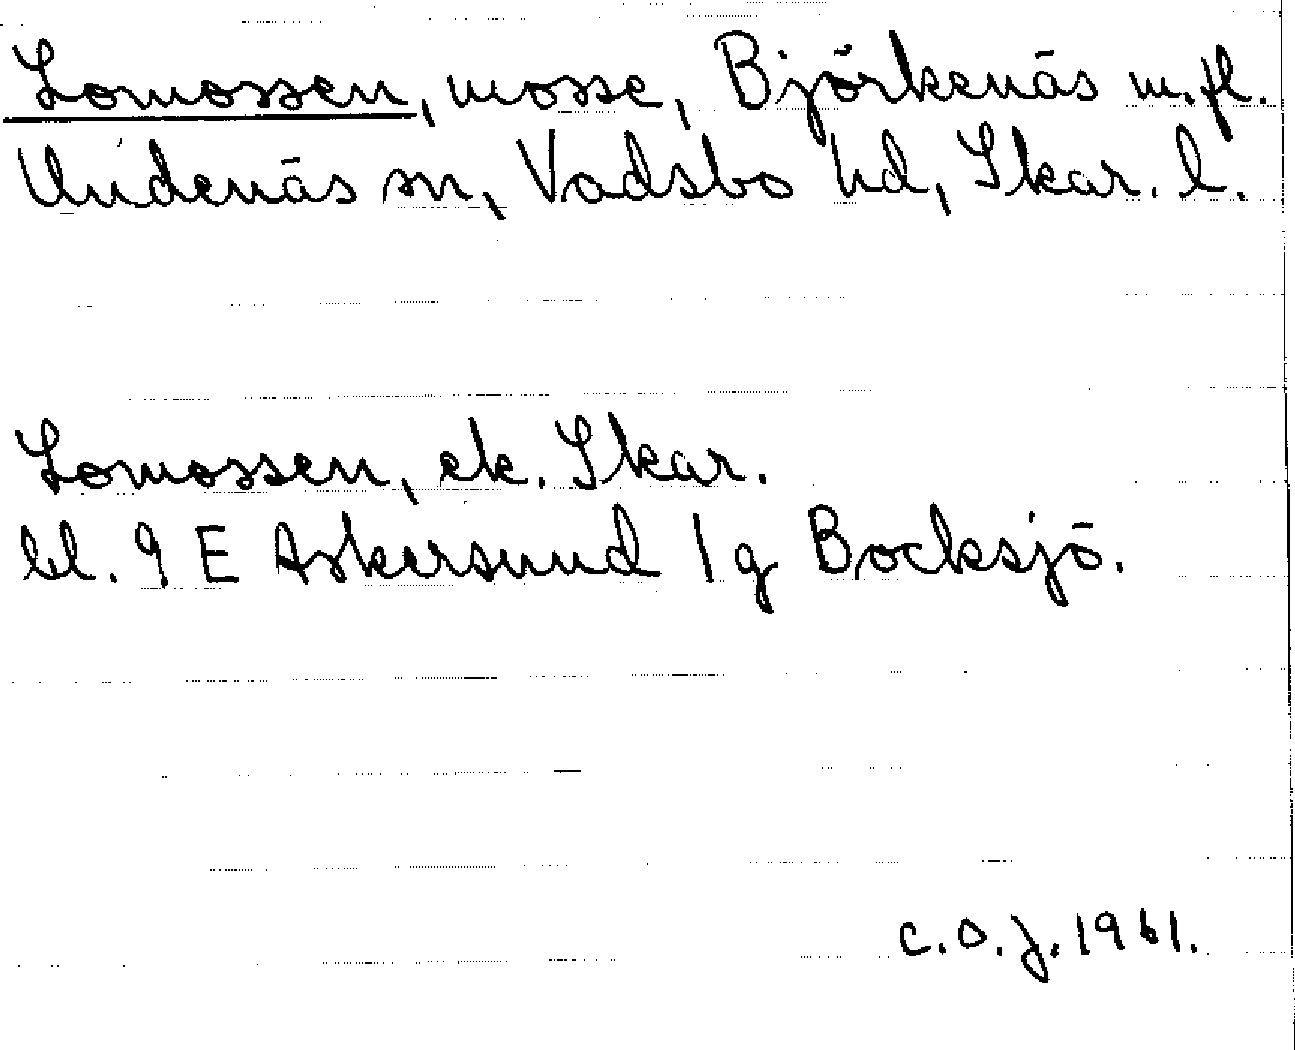 Lomossen, mosse, Björkenäs m.fl.
Undenäs sn, Vadsbo hd, Skar. l.
Lomossen, ek. Skar.
bl. 9 E Askersund 1g Bocksjö.
C.O.J. 1961.